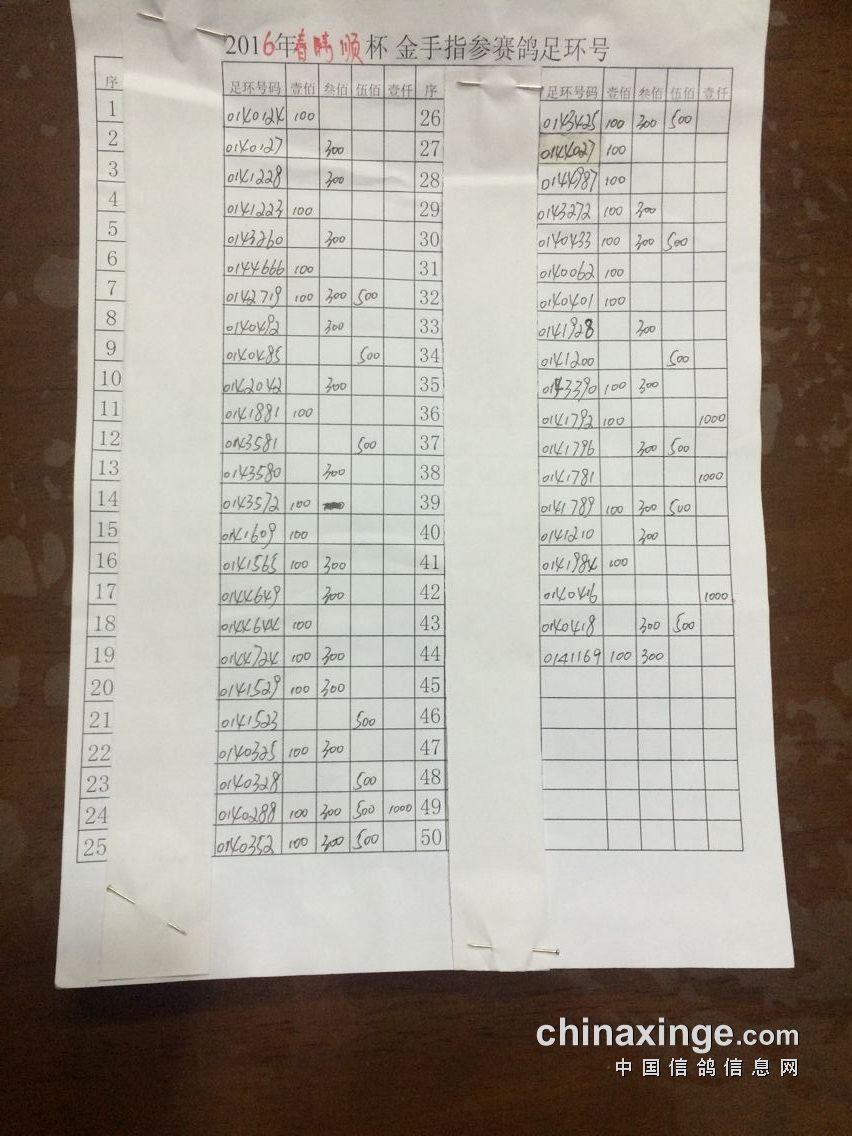 2016年春晴顺杯 金手指参赛鸽足环号
序 足环号码 壹佰 叁佰 伍佰 壹仟 序 足环号码 壹佰 叁佰 伍佰 壹仟
1 0140124 100 26 0143425 100 300 500
2 0140127 300 27 0144027 100
3 0141228 300 28 0144987 100
4 0141223 100 29 0143272 100 300
5 0143260 300 30 0140433 100 300 500
6 0144666 100 31 0140062 100
7 0142719 100 300 500 32 0140401 100
8 0140492 300 33 0141928 300
9 0140485 500 34 0141200 500
10 0142042 300 35 0143390 100 300
11 0141881 100 36 0141792 100 1000
12 0143581 500 37 0141796 300 500
13 0143580 300 38 0141781 1000
14 0143572 100 39 0141789 100 300 500
15 0141609 100 40 0141210 300
16 0141565 100 300 41 0141984 100
17 0144649 300 42 0140416 1000
18 0144644 100 43 0140418 300 500
19 0144724 100 300 44 0141169 100 300
20 0141529 100 300 45
21 0141523 500 46
22 0140325 100 300 47
23 0140328 500 48
24 0140288 100 300 500 1000 49
25 0140352 100 300 500 50
chinaxinge.com
中国信鸽信息网